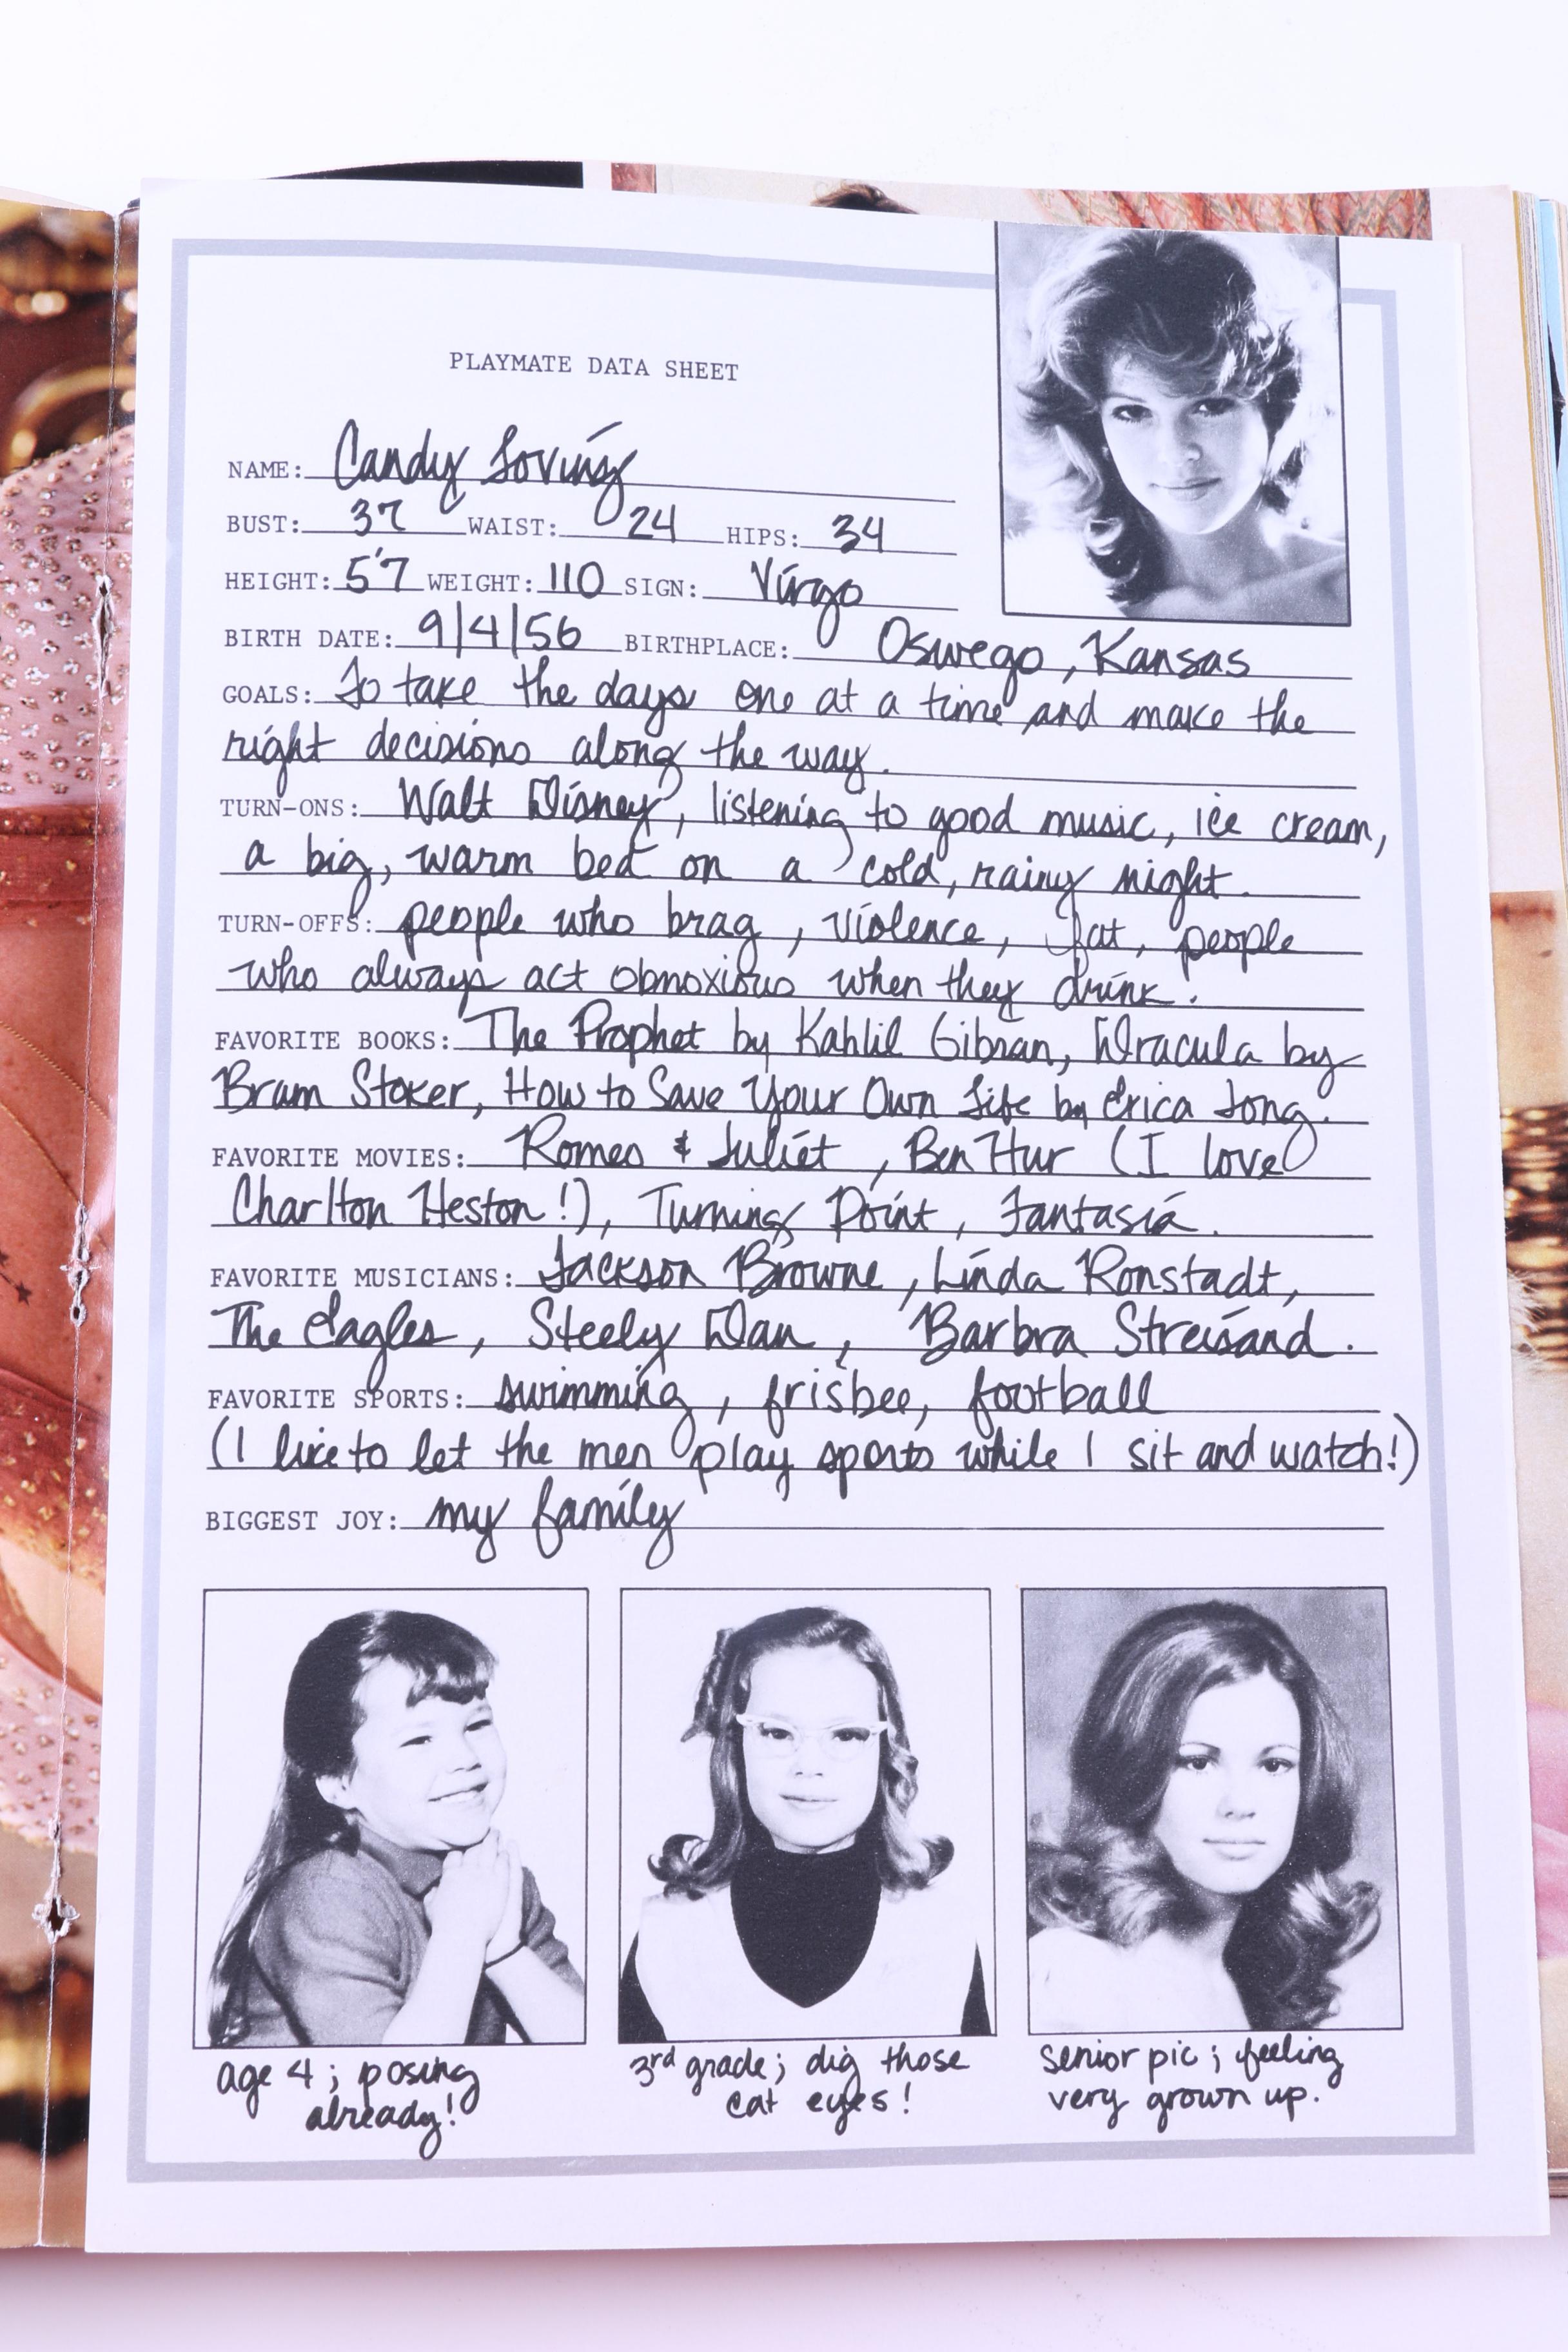 PLAYMATE DATA SHEET
NAME: Candy Loving
BUST: 37 WAIST: 24 HIPS: 34
HEIGHT: 5'7 WEIGHT: 110 SIGN: Virgo
BIRTH DATE: 9/4/56 BIRTHPLACE: Oswego, Kansas
GOALS: To take the days one at a time and make the
right decisions along the way.
TURN-ONS: Walt Disney, listening to good music, ice cream,
a big, warm bed on a cold, rainy night.
TURN-OFFS: people who brag, violence, fat, people
who always act obnoxious when they drink.
FAVORITE BOOKS: The Prophet by Kahlil Gibran, Dracula by
Bram Stoker, How to Save Your Own Life by Erica Jong.
FAVORITE MOVIES: Romeo & Juliet, Ben Hur (I love
Charlton Heston!), Turning Point, Fantasia.
FAVORITE MUSICIANS: Jackson Browne, Linda Ronstadt,
The Eagles, Steely Dan, Barbra Streisand.
FAVORITE SPORTS: swimming, frisbee, football
(I like to let the men play sports while I sit and watch!)
BIGGEST JOY: my family
age 4; posing
already!
3rd grade; dig those
cat eyes!
senior pic; feeling
very grown up.